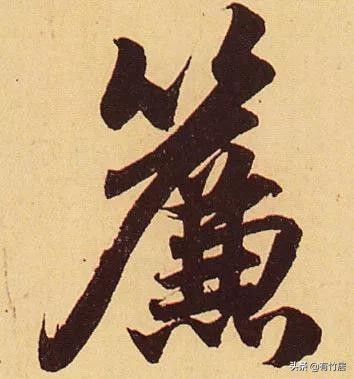 簾
头条 @有竹居